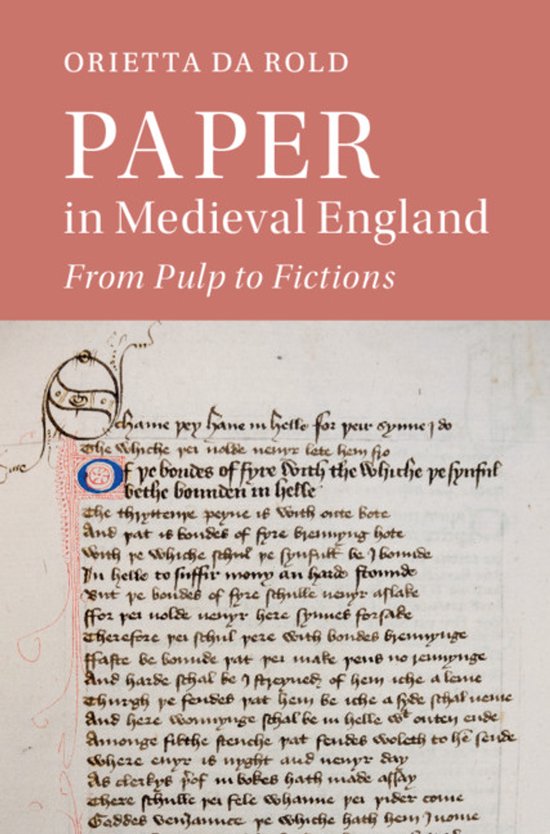 ORIETTA DA ROLD
PAPER
in Medieval England
From Pulp to Fictions
Schame þey haue in helle for þeir synne I do
The whiche þei nolde neuyr lete hem fro
Of þe bondes of fyre with the whiche þe synful
bethe bounden in helle
The thryttenþe peyne is with oute bote
And þat is bondes of fyre brennyng hote
With þe whiche schul þe synfull be I bounde
In helle to suffir mony an harde stounde
But þe bondes of fyre schulle neuyr aslake
ffor þei nolde neuyr here synnes forsake
Therefore þei schul þere with bondes brennynge
ffaste be bounde þat þei make þens no
And harde schal be I streyned of hem iche a leme
Thurgh þe fendes þat hem be iche a syde schal neme
And here wonnynge schal be in helle wt outen ende
Amonge filthe stenche þat fendes woleth to hē sende
Where euyr is nyght and neuyr day
As clerkys þof in bokes hath made assay
There schulle þei fele whanne þei þider come
Goddes veniaunce þe whiche hath hem I nome